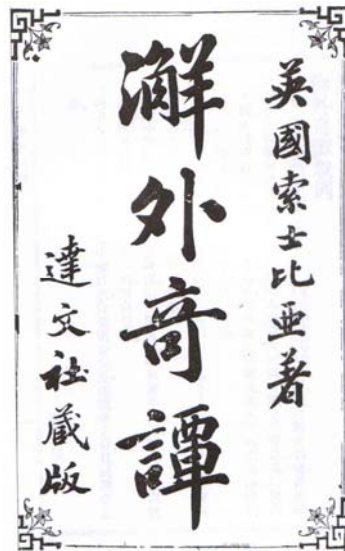 英國索士比亜著
澥外奇譚
達文社蔵版